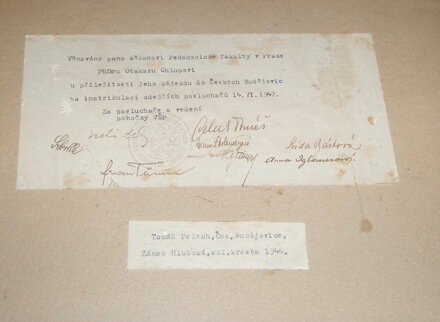 Věnováno panu děkanovi Pedagogické fakulty v Praze
PhDru Otakaru Chlupovi
u příležitosti jeho zájezdu do Českých Budějovic
na imatrikulaci zdejších posluchačů 14.VI.1947.
Za posluchače a vedení
pobočky VŠP
Tomáš
Lída Bártová
Anna
Tomáš Pelech, Čes. Budějovice,
Zámek Hluboká, kol. kresba 1946.